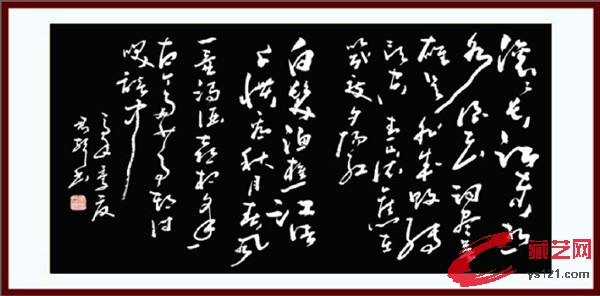 滚滚长江东逝
水浪花淘尽英
雄是非成败转
头空青山依旧在
几度夕阳红
白发渔樵江渚
上惯看秋月春风
一壶浊酒喜相逢
古今多少事都付
笑谈中
藏艺网
ys121.com